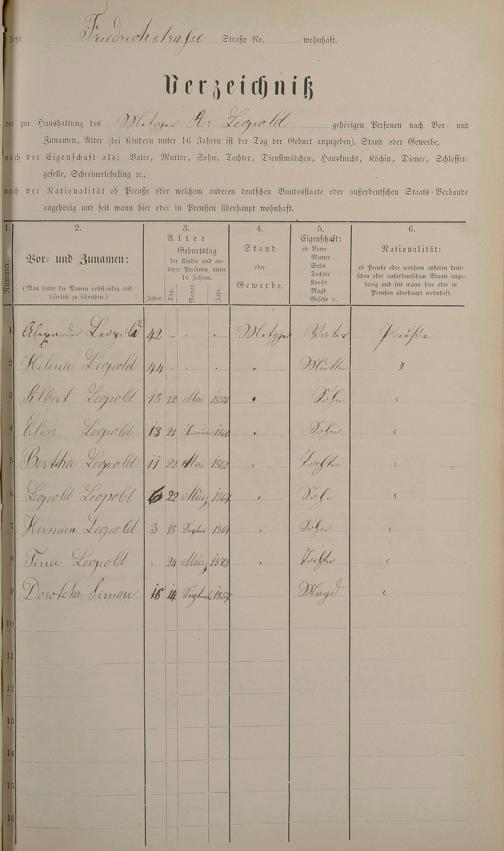 Jetzt Friedrichstraße Straße No. wohnhaft.
Verzeichniß
der zur Haushaltung des Metzger A: Leopold gehörigen Personen nach Vor- und
Zunamen, Alter (bei Kindern unter 16 Jahren ist der Tag der Geburt anzugeben), Stand oder Gewerbe,
nach der Eigenschaft als: Vater, Mutter, Sohn, Tochter, Dienstmädchen, Hausknecht, Köchin, Diener, Schlosser-
geselle, Schreinerlehrling ꝛc.,
nach der Nationalität ob Preuße oder welchem anderen deutschen Bundesstaate oder außerdeutschen Staats-Verbande
angehörig und seit wann hier oder in Preußen überhaupt wohnhaft.
1. 2. 3. 4. 5. 6.
Nummer.
Vor- und Zunamen:
(Man bittet die Namen vollständig und
leserlich zu schreiben.)
Alter
Geburtstag
der Kinder und an-
derer Personen unter
16 Jahren.
Jahre. Tag. Monat. Jahr.
Stand
oder
Gewerbe.
Eigenschaft:
ob Vater
Mutter
Sohn
Tochter
Knecht
Magd
Geselle u.
Nationalität:
ob Preuße oder welchem anderen deut-
schen oder außerdeutschen Staat ange-
hörig und seit wann hier oder in
Preußen überhaupt wohnhaft.
1 Alexander Leopold 42 . . . Metzger Vater Preuße
2 Helena Leopold 44 . . . " Mutter "
3 Albert Leopold 15 12 Mai 1858 " Sohn "
4 Elias Leopold 13 21 1860 " Sohn "
5 Bertha Leopold 11 22 Mai 1862 " Tochter "
6 Leopold Leopold 6 22 März 1867 " Sohn "
7 Herman Leopold 3 15 Septbr Sohn "
8 Tina Leopold . 24 März 1873 " Tochter "
9 Dorothea Simon 16 14 Septemb 1857 Magd "
10
11
12
13
14
15
16